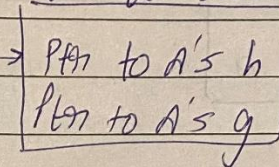 → Ptr to A's h
Ptr to A's g